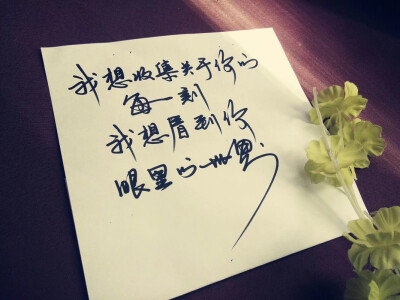 我想收集关于你的
每一刻
我想看到你
眼里的世界